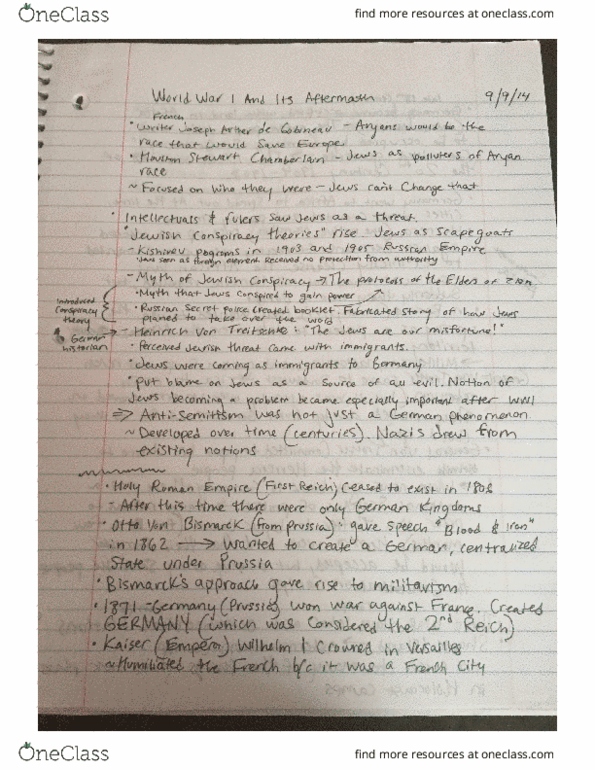 OneClass
find more resources at oneclass.com
World War I And Its Aftermath 9/9/14
French
• Writer Joseph Arther de Gobineau - Aryans would be the
race that would save Europe
• Houston Stewart Chamberlain - Jews as polluters of Aryan
race
~ Focused on who they were - Jews can't change that
• Intellectuals & rulers saw Jews as a threat.
• "Jewish conspiracy theories" rise. Jews as scapegoats
- Kishinev pogroms in 1903 and 1905 Russian Empire
• Jews seen as foreign element. Received no protection from authority
- Myth of Jewish Conspiracy → The protocols of the Elders of Zion
• Myth that Jews conspired to gain power
• Russian Secret Police created booklet. Fabricated story of how Jews
planed to take over the world
Introduced
conspiracy
theory
- Heinrich Von Treitschke: "The Jews are our misfortune!"
German
historian
• Perceived Jewish threat came with immigrants.
• Jews were coming as immigrants to Germany
• Put blame on Jews as a source of all evil. Notion of
Jews becoming a problem became especially important after WWI
⇒ Anti-semitism was not just a German phenomenon
~ Developed over time (centuries). Nazis drew from
existing notions
• Holy Roman Empire (First Reich) ceased to exist in
- After this time there were only German Kingdoms
• Otto Von Bismarck (from prussia): gave speech "Blood & Iron"
in 1862 → Wanted to create a German, centralized
State under Prussia
• Bismarck's approach gave rise to militarism
• 1871 - Germany (Prussia) won war against France. Created
GERMANY (which was considered the 2nd Reich)
• Kaiser (Emperor) Wilhelm I crowned in Versailles
~ Humiliated the French b/c it was a French City
OneClass
find more resources at oneclass.com